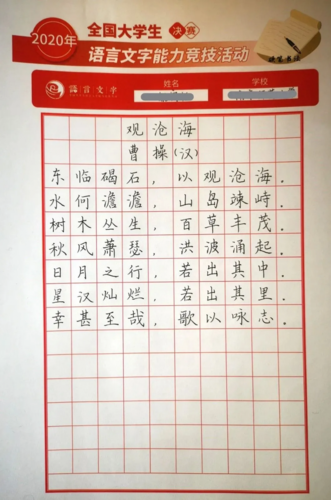 2020年
全国大学生 决赛
语言文字能力竞技活动
硬笔书法
语言文字
姓名 学校
观沧海
曹操(汉)
东临碣石,以观沧海.
水何澹澹,山岛竦峙.
树木丛生,百草丰茂.
秋风萧瑟,洪波涌起.
日月之行,若出其中.
星汉灿烂,若出其里.
幸甚至哉,歌以咏志.